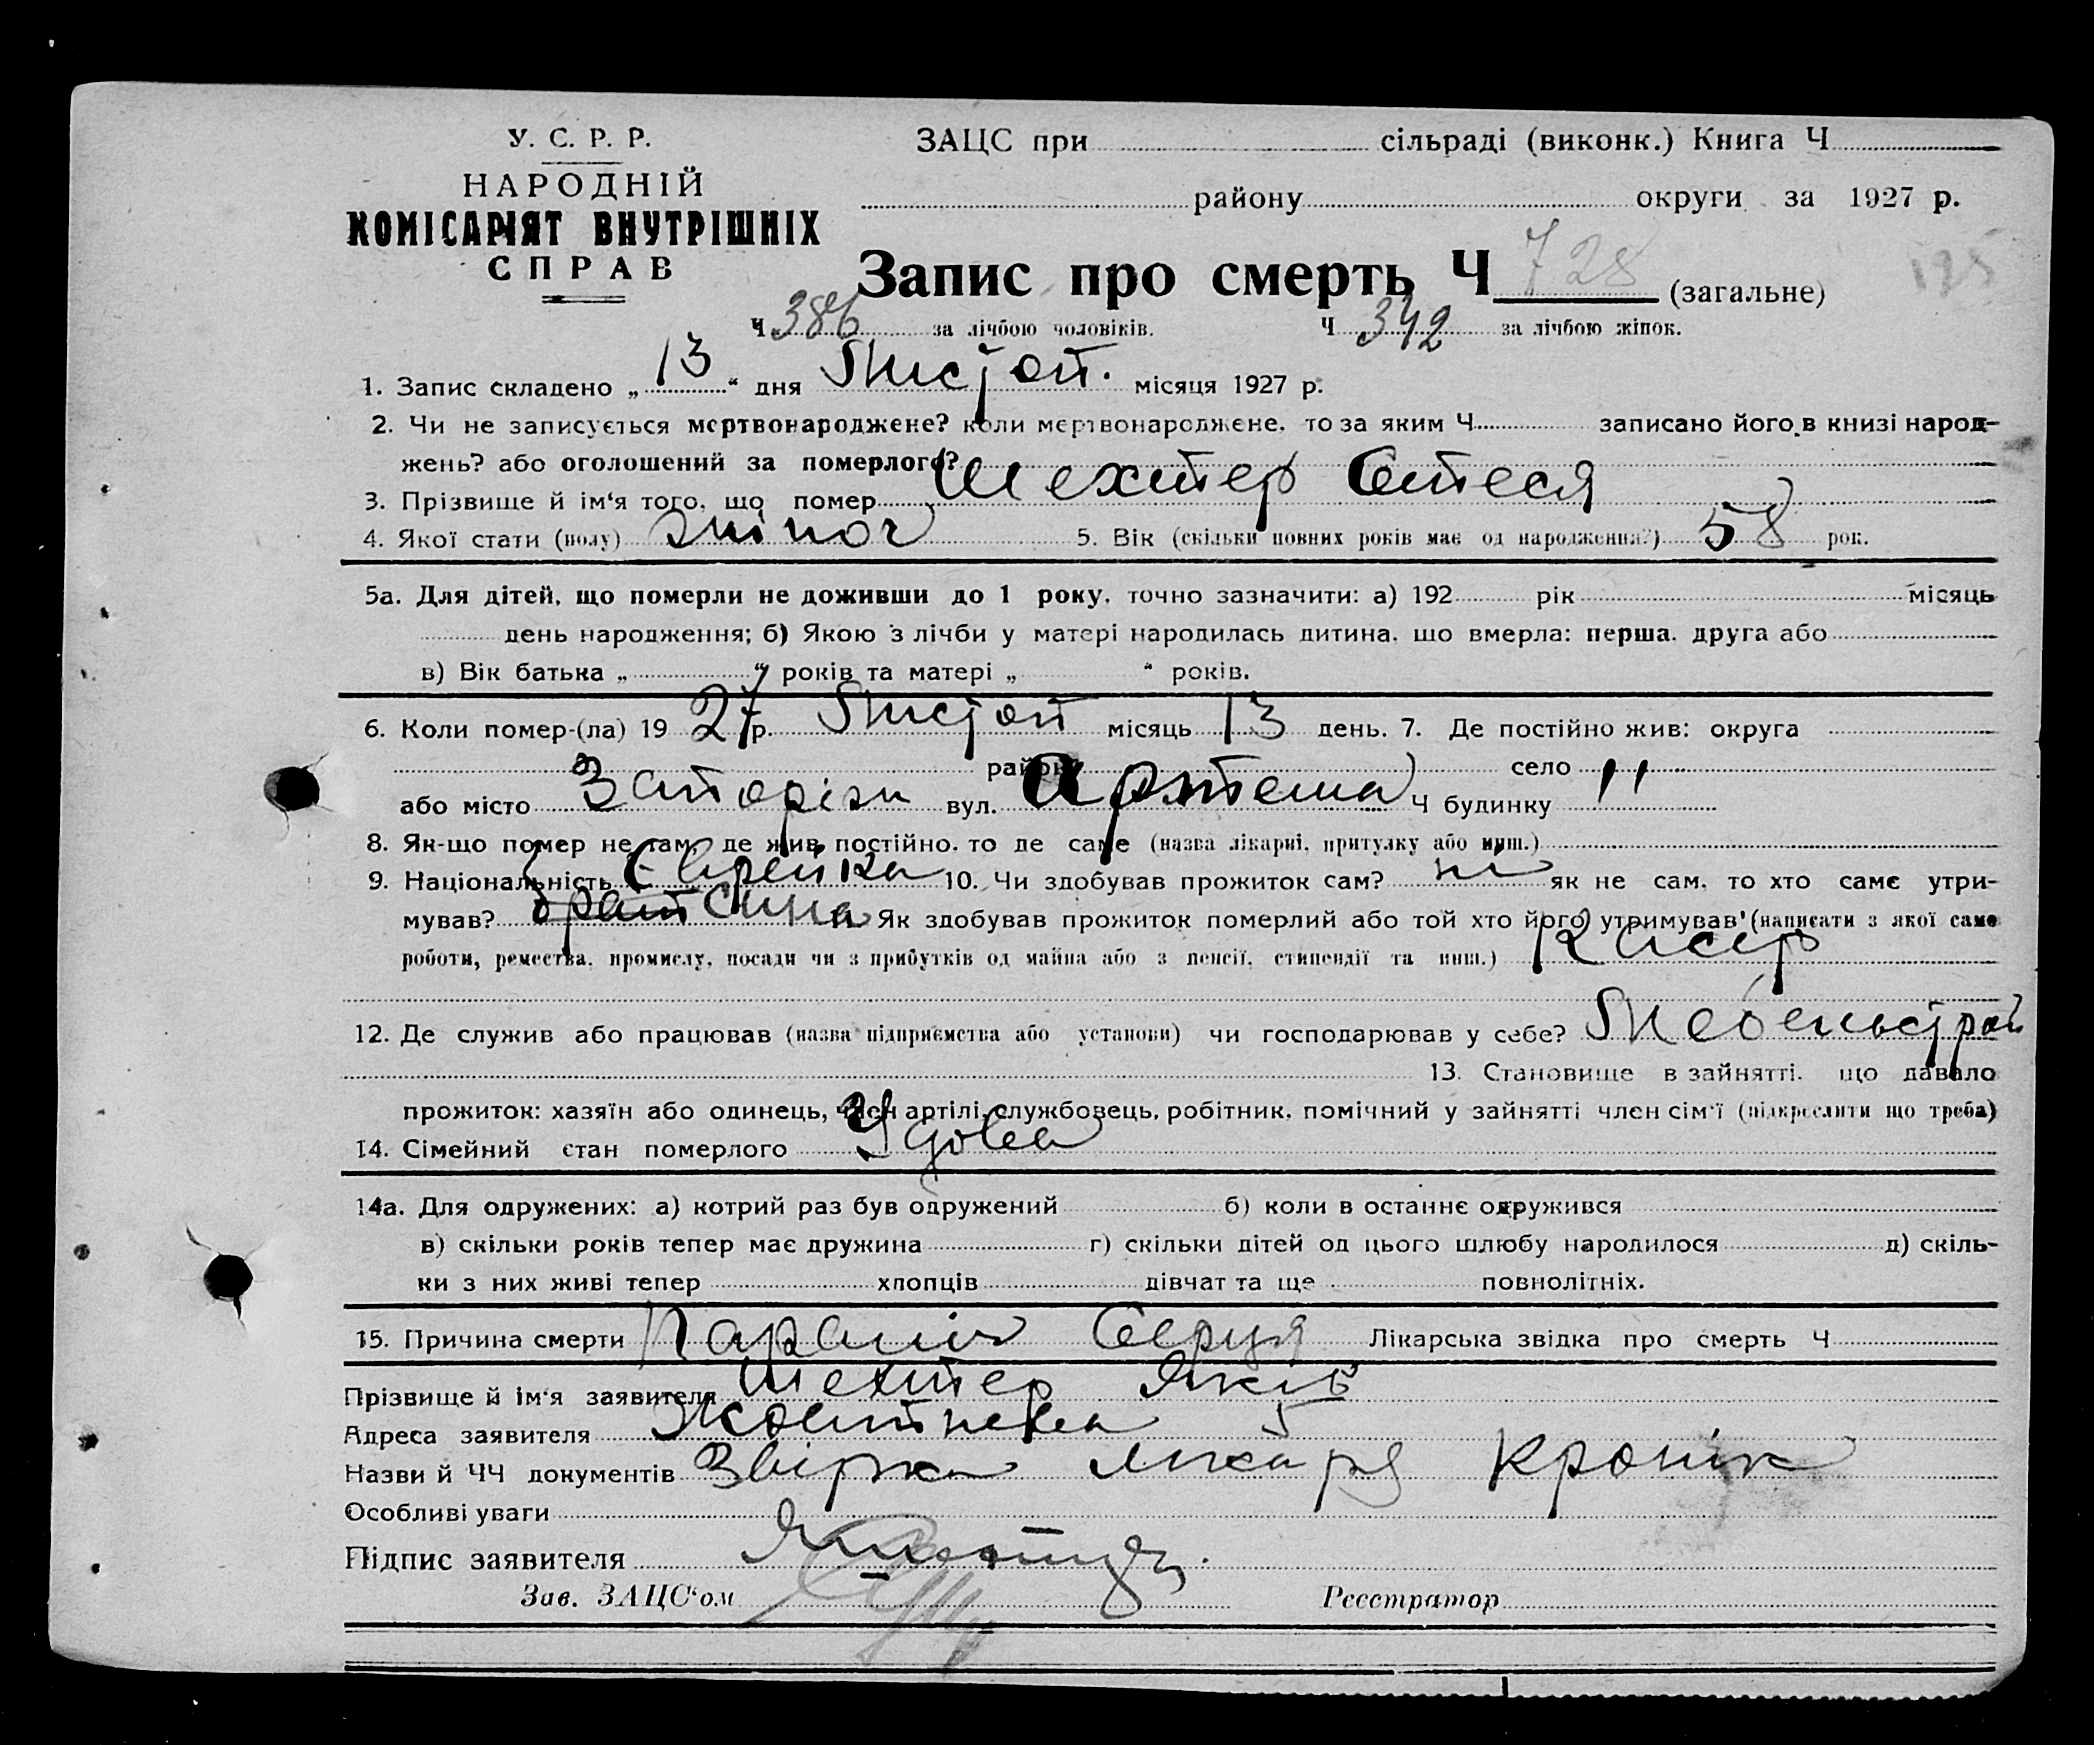 У. С. Р. Р.
НАРОДНІЙ
КОМІСАРІЯТ ВНУТРІШНІХ
СПРАВ
ЗАЦС при сільраді (виконк.) Книга Ч
району округи за 1927 р.
Запис про смерть Ч 728 (загальне)
195
Ч 386 за лічбою чоловіків. Ч 342 за лічбою жінок.
1. Запис складено „ 13 “ дня Листоп. місяця 1927 р.
2. Чи не записується мертвонароджене? коли мертвонароджене, то за яким Ч записано його в книзі народ-
жень? або оголошений за померлого?
3. Прізвище й ім‘я того, що помер Шехтер
4. Якої стати (полу) жіноч 5. Вік (скільки повних років має од народження?) 58 рок.
5а. Для дітей, що померли не доживши до 1 року, точно зазначити: а) 192 рік місяць
день народження; б) Якою з лічби у матері народилась дитина, що вмерла: перша, друга або
в) Вік батька „ “ років та матері „ “ років.
6. Коли помер-(ла) 19 27 р. Листоп місяць 13 день. 7. Де постійно жив: округа
район село
або місто Запоріжж вул. Артема Ч будинку 11
8. Як-що помер не там, де жив постійно, то де саме (назва лікарні, притулку або инш.)
9. Національність Єврейка 10. Чи здобував прожиток сам? ні як не сам, то хто саме утри-
мував? брат Сина 11. Як здобував прожиток померлий або той хто його утримував (написати з якої саме
роботи, ремества, промислу, посади чи з прибутків од майна або з пенсії, стипендії та инш.) Касир
12. Де служив або працював (назва підприємства або установи) чи господарював у себе?
13. Становище в зайнятті, що давало
прожиток: хазяїн або одинець, член артілі, службовець, робітник, помічний у зайнятті член сім‘ї (підкреслити що треба)
14. Сімейний стан померлого Удова
14а. Для одружених: а) котрий раз був одружений б) коли в останнє одружився
в) скільки років тепер має дружина г) скільки дітей од цього шлюбу народилося д) скіль-
ки з них живі тепер хлопців дівчат та ще повнолітніх.
15. Причина смерти Параліч Серця Лікарська звідка про смерть Ч
Прізвище й ім‘я заявителя Шехтер Яків
Адреса заявителя Жовтнева 5
Назви й ЧЧ документів лікаря Кронік
Особливі уваги
Підпис заявителя
Зав. ЗАЦС‘ом Реєстратор